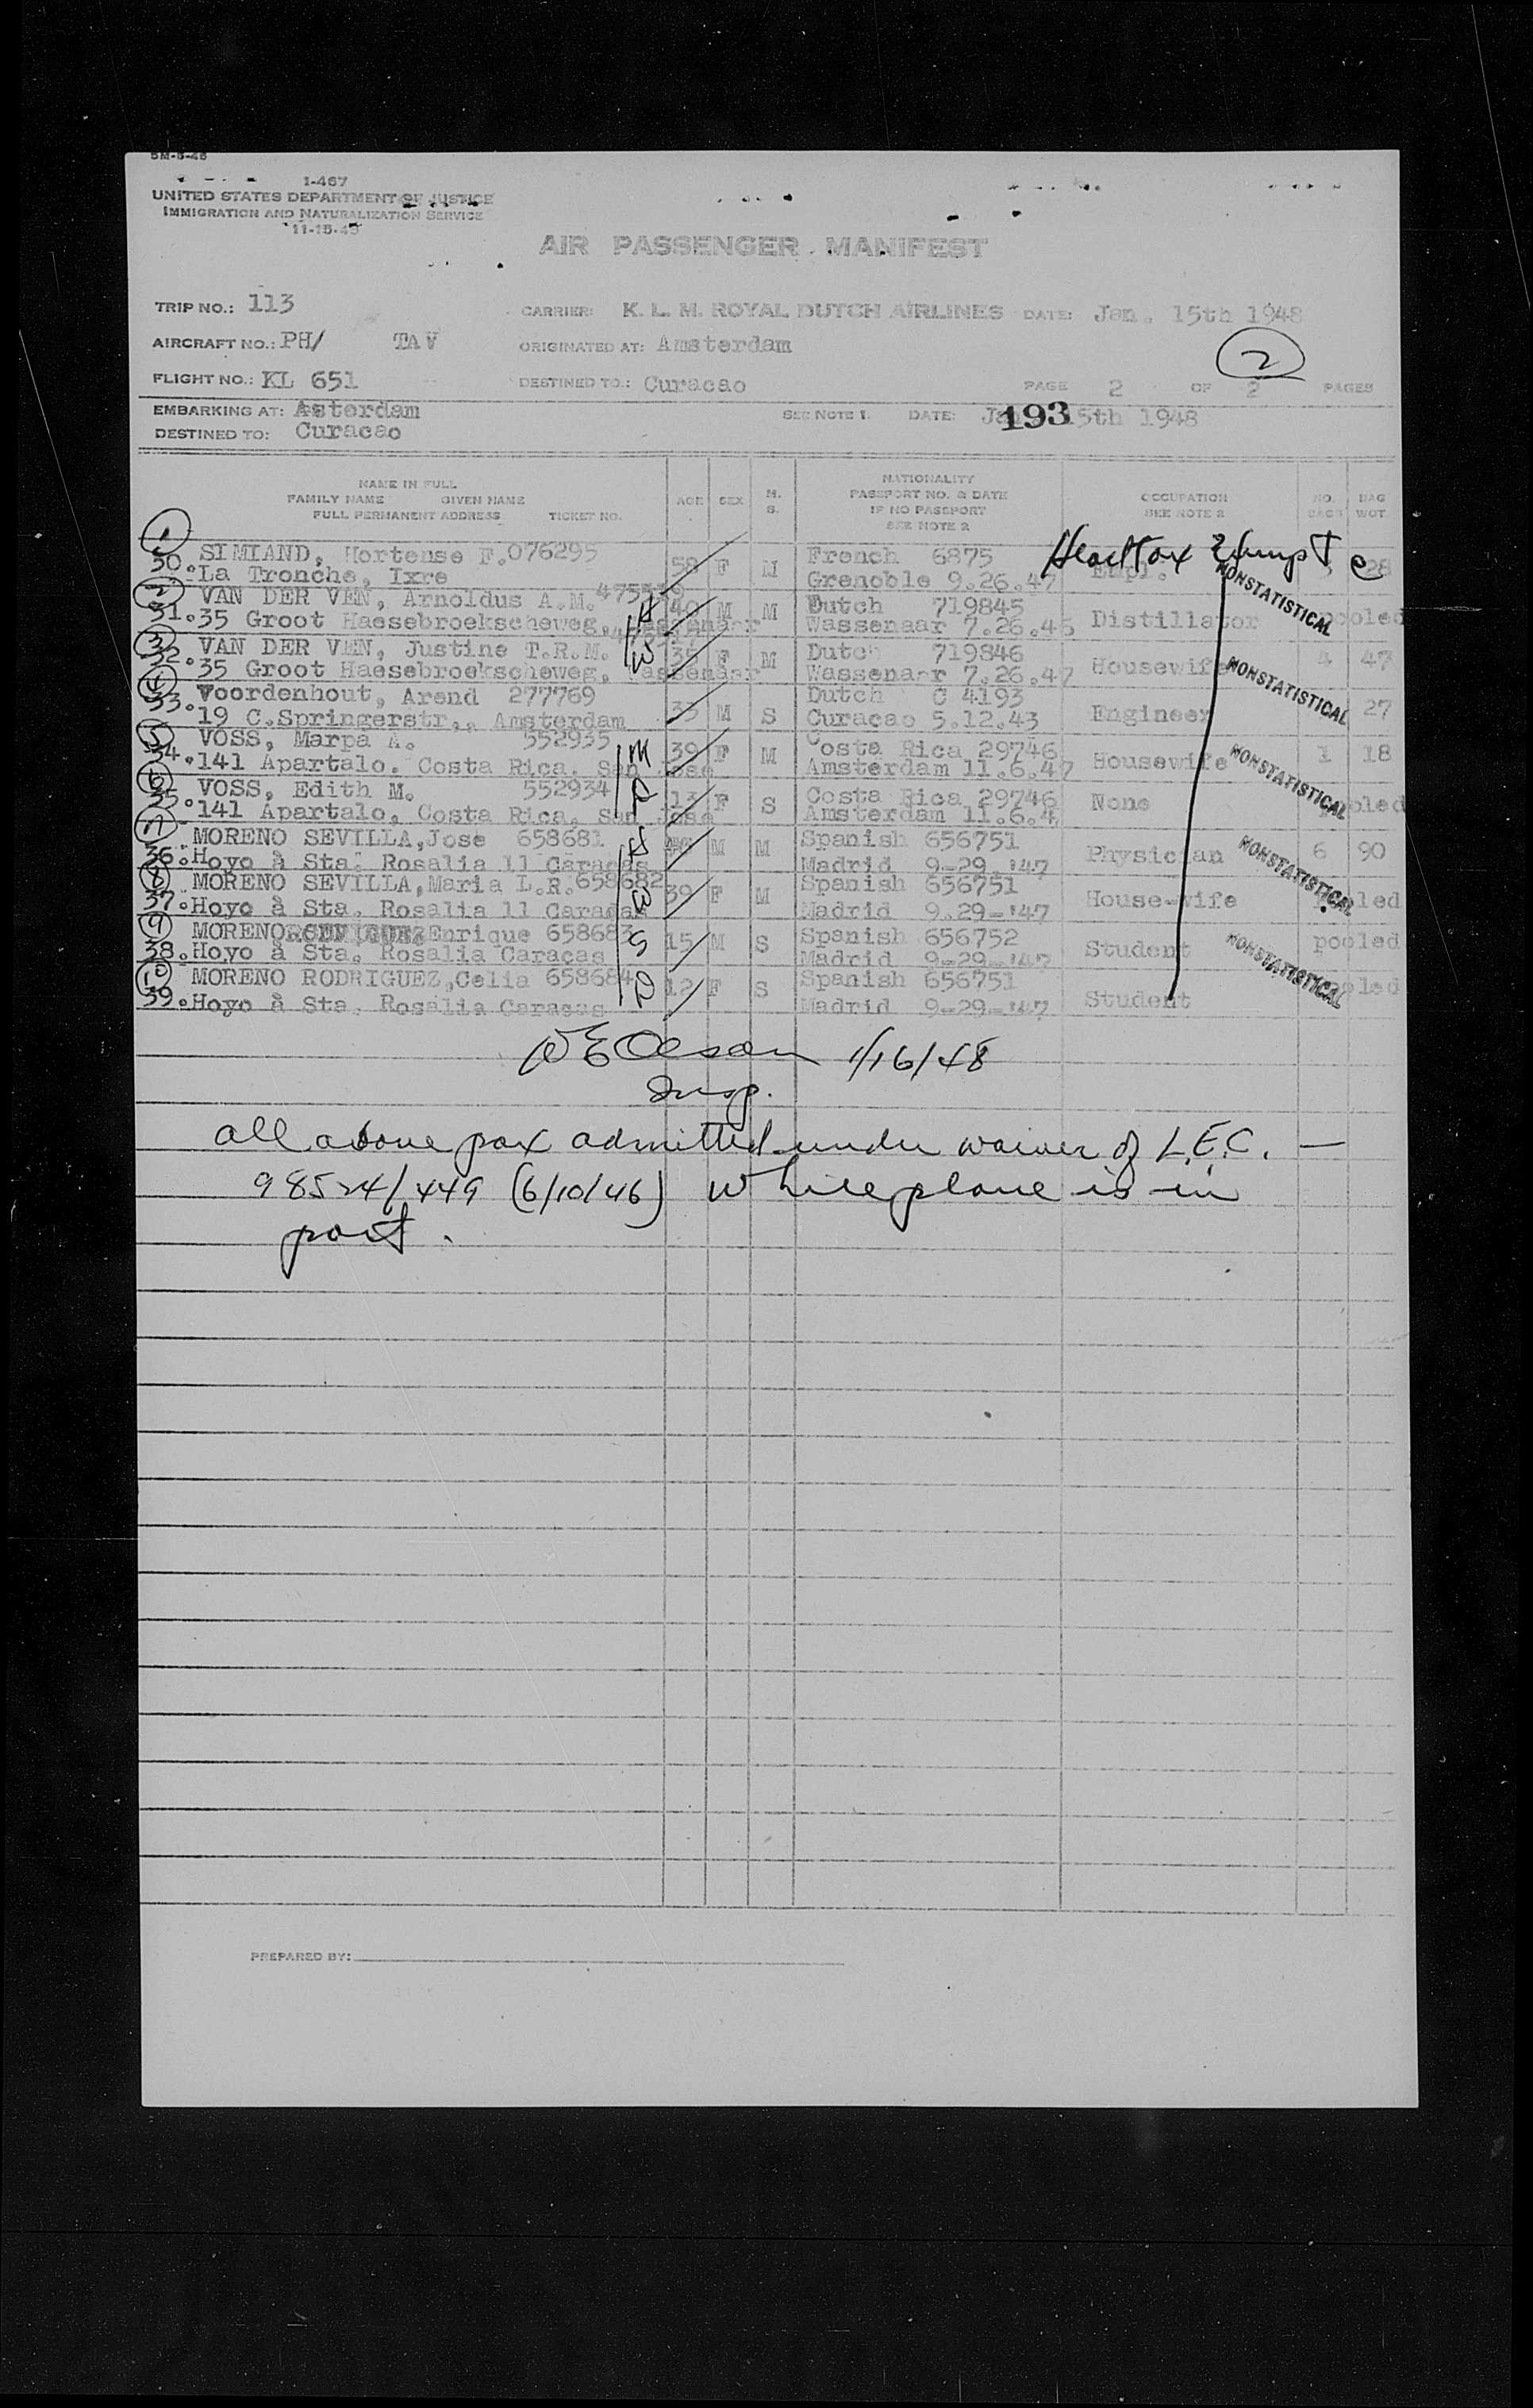 5M-6-46
I-467
UNITED STATES DEPARTMENT OF JUSTICE
IMMIGRATION AND NATURALIZATION SERVICE
11-15-45
AIR PASSENGER MANIFEST
TRIP NO.: 113 CARRIER: K. L. M. ROYAL DUTCH AIRLINES DATE: Jan. 15th 1948
AIRCRAFT NO.: PH/ TAV ORIGINATED AT: Amsterdam 2
FLIGHT NO.: KL 651 DESTINED TO.: Curacao PAGE 2 OF 2 PAGES
EMBARKING AT: Asterdam SEE NOTE 1. DATE: 193 15th 1948
DESTINED TO: Curacao
NAME IN FULL
FAMILY NAME GIVEN NAME
FULL PERMANENT ADDRESS TICKET NO.
AGE SEX M. S.
NATIONALITY
PASSPORT NO. & DATE
IF NO PASSPORT
SEE NOTE 2
OCCUPATION
SEE NOTE 2
NO. BAGS BAG WGT.
1 Head tax exempt
SIMIAND, Hortense F. 076295 58 F M French 6875 Empl. 3 28
30. La Tronche, Ixre Grenoble 9.26.47
2 VAN DER VEN, Arnoldus A.M. 40 M M Dutch 719845 Distillator pooled NONSTATISTICAL
31. 35 Groot Haesebroekscheweg, Wassenaar Wassenaar 7.26.45
3 VAN DER VEN, Justine T.R.M. W 35 F M Dutch 719846 Housewife 4 47 NONSTATISTICAL
32. 35 Groot Haesebroekscheweg, Wassenaar Wassenaar 7.26.47
4 Voordenhout, Arend 277769 33 M S Dutch C 4193 Engineer 27
33. 19 C.Springerstr., Amsterdam Curacao 5.12.43
5 VOSS, Marpa A. 552935 M 39 F M Costa Rica 29746 Housewife 1 18 NONSTATISTICAL
34. 141 Apartalo. Costa Rica. San Jose Amsterdam 11.6.47
6 VOSS, Edith M. 552934 D 13 F S Costa Rica 29746 None pooled
35. 141 Apartalo, Costa Rica, San Jose Amsterdam 11.6.4
7 MORENO SEVILLA, Jose 658681 H M M Spanish 656751 Physician 6 90 NONSTATISTICAL
36. Hoyo à Sta. Rosalia 11 Caracas Madrid 9-29-'47
8 MORENO SEVILLA, Maria L.R. 658682 W 39 F M Spanish 656751 House-wife pooled
37. Hoyo à Sta. Rosalia 11 Caracas Madrid 9.29-'47
9 MORENO RODRIGUEZ Enrique 658683 S 15 M S Spanish 656752 Student pooled NONSTATISTICAL
38. Hoyo à Sta. Rosalia Caracas Madrid 9-29-'47
10 MORENO RODRIGUEZ, Celia 658684 D 12 F S Spanish 656751 Student pooled
39. Hoyo à Sta. Rosalia Caracas Madrid 9-29-'47
W E Olsen 1/16/48
Insp.
All above pax admitted under waiver of L.E.C. —
98524/449 (6/10/46) While plane is in
port.
PREPARED BY: